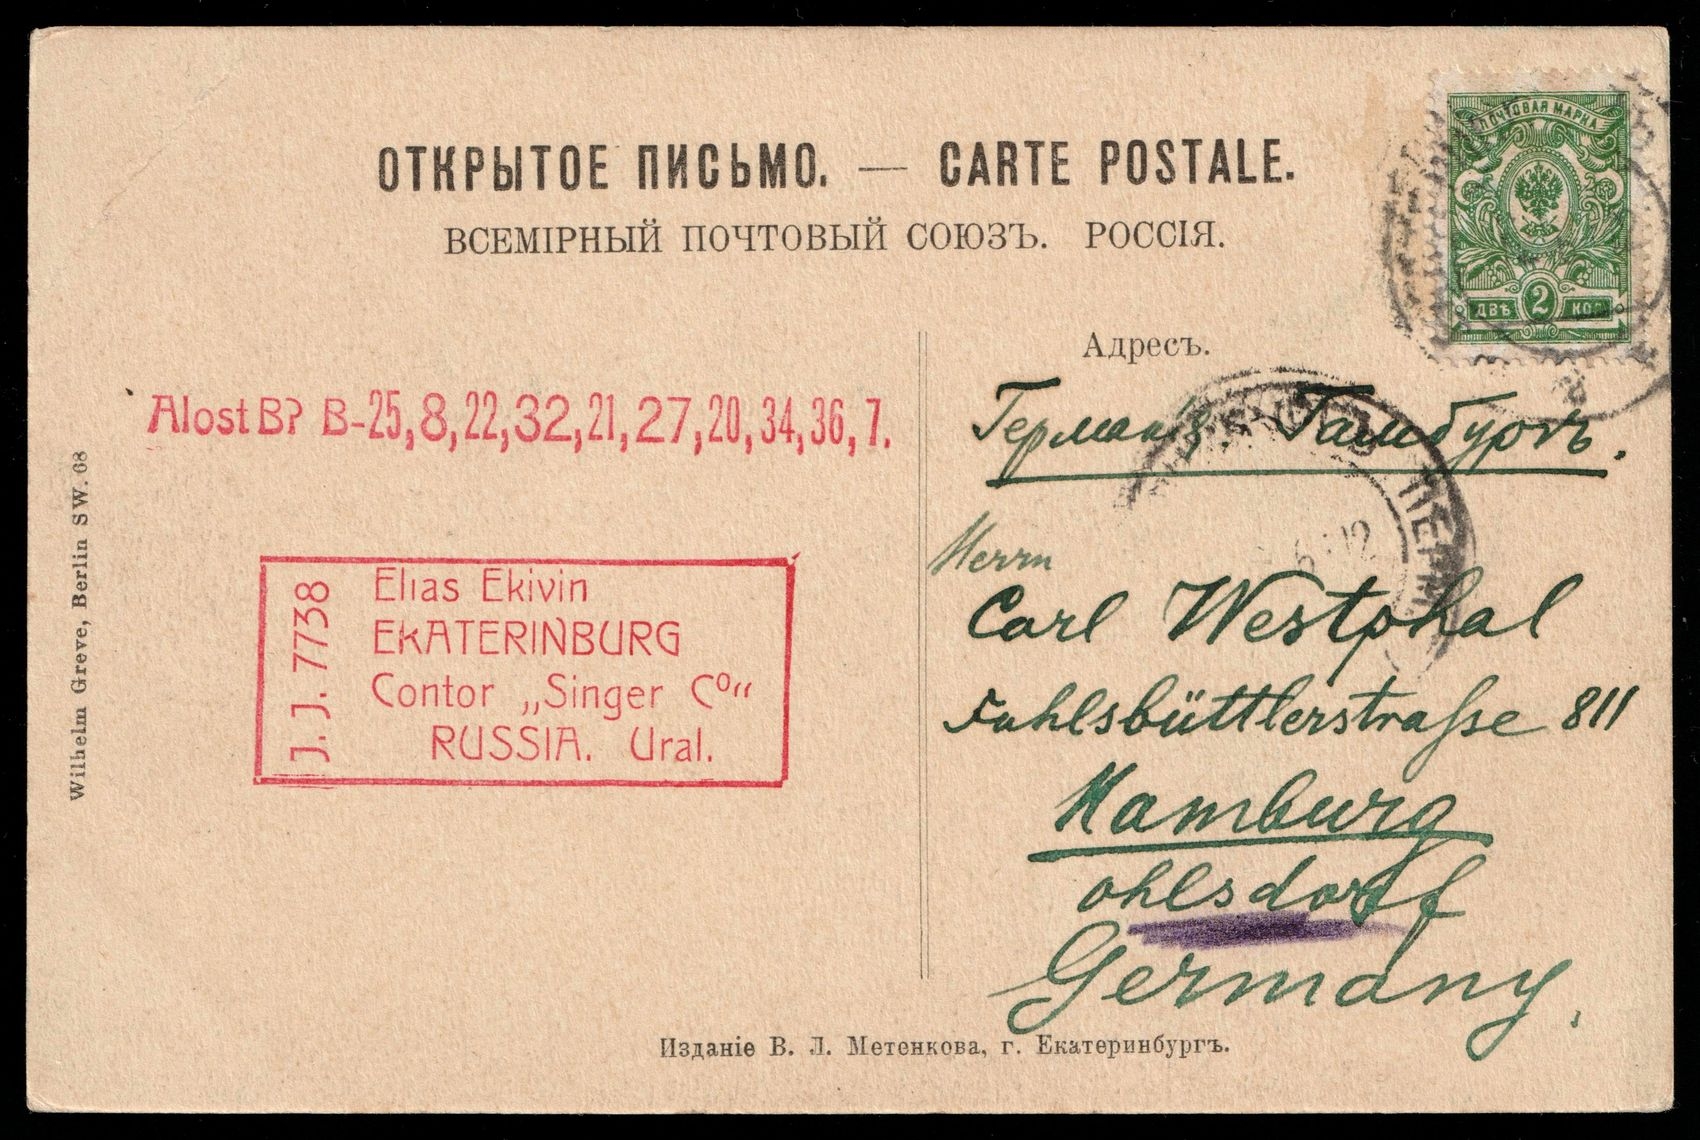 ОТКРЫТОЕ ПИСЬМО. — CARTE POSTALE.
ВСЕМІРНЫЙ ПОЧТОВЫЙ СОЮЗЪ. РОССІЯ.
ПОЧТОВАЯ МАРКА
ДВѢ 2 КОП
Адресъ.
Alost B? B-25,8,22,32,21,27,20,34,36,7.
J.J. 7738
Elias Ekivin
EKATERINBURG
Contor „Singer Cº“
RUSSIA. Ural.
Wilhelm Greve, Berlin SW. 68
Германія. Гамбургъ.
ПЕРМ
Herrn
Carl Westphal
Fuhlsbüttlerstraße 811
Hamburg
Ohlsdorf
Germany.
Изданіе В. Л. Метенкова, г. Екатеринбургъ.